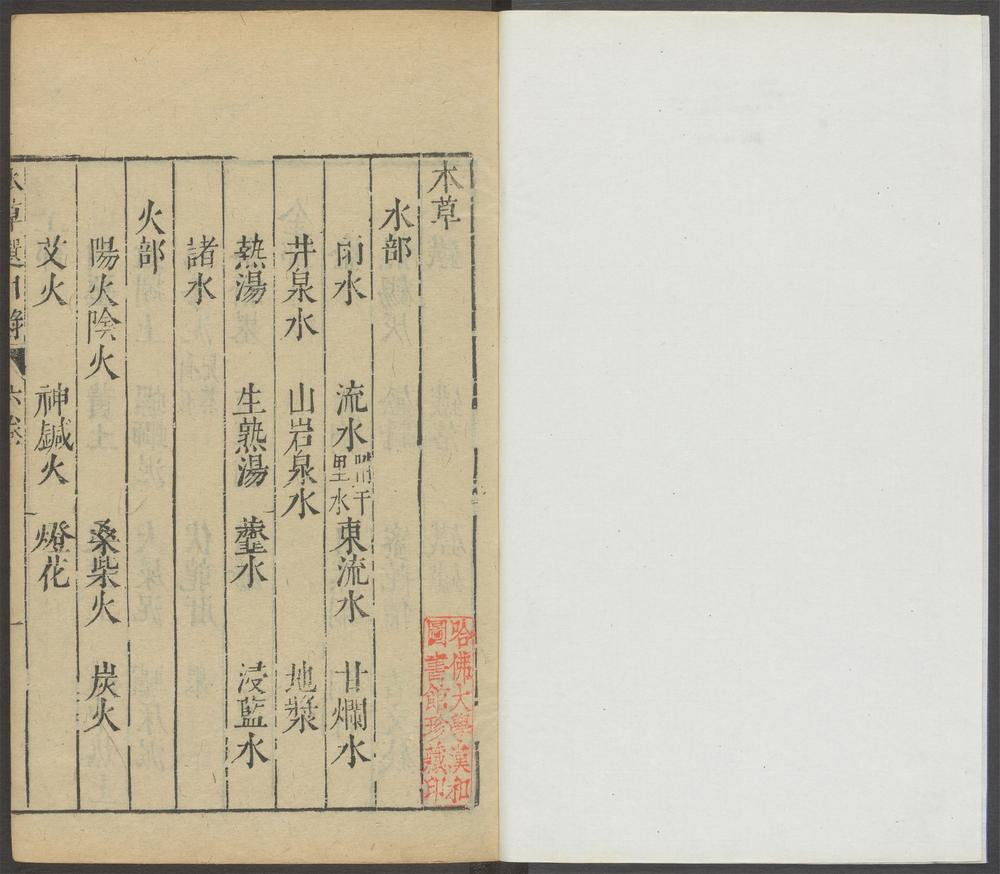 本草
水部
雨水 流水附千里水 東流水 甘爛水
井泉水 山岩泉水 地漿
熱湯 生熟湯 虀水 浸藍水
諸水
火部
陽火陰火 桑柴火 炭火
艾火 神鍼火 燈花
六卷 一
哈佛大學漢和
圖書館珍藏印